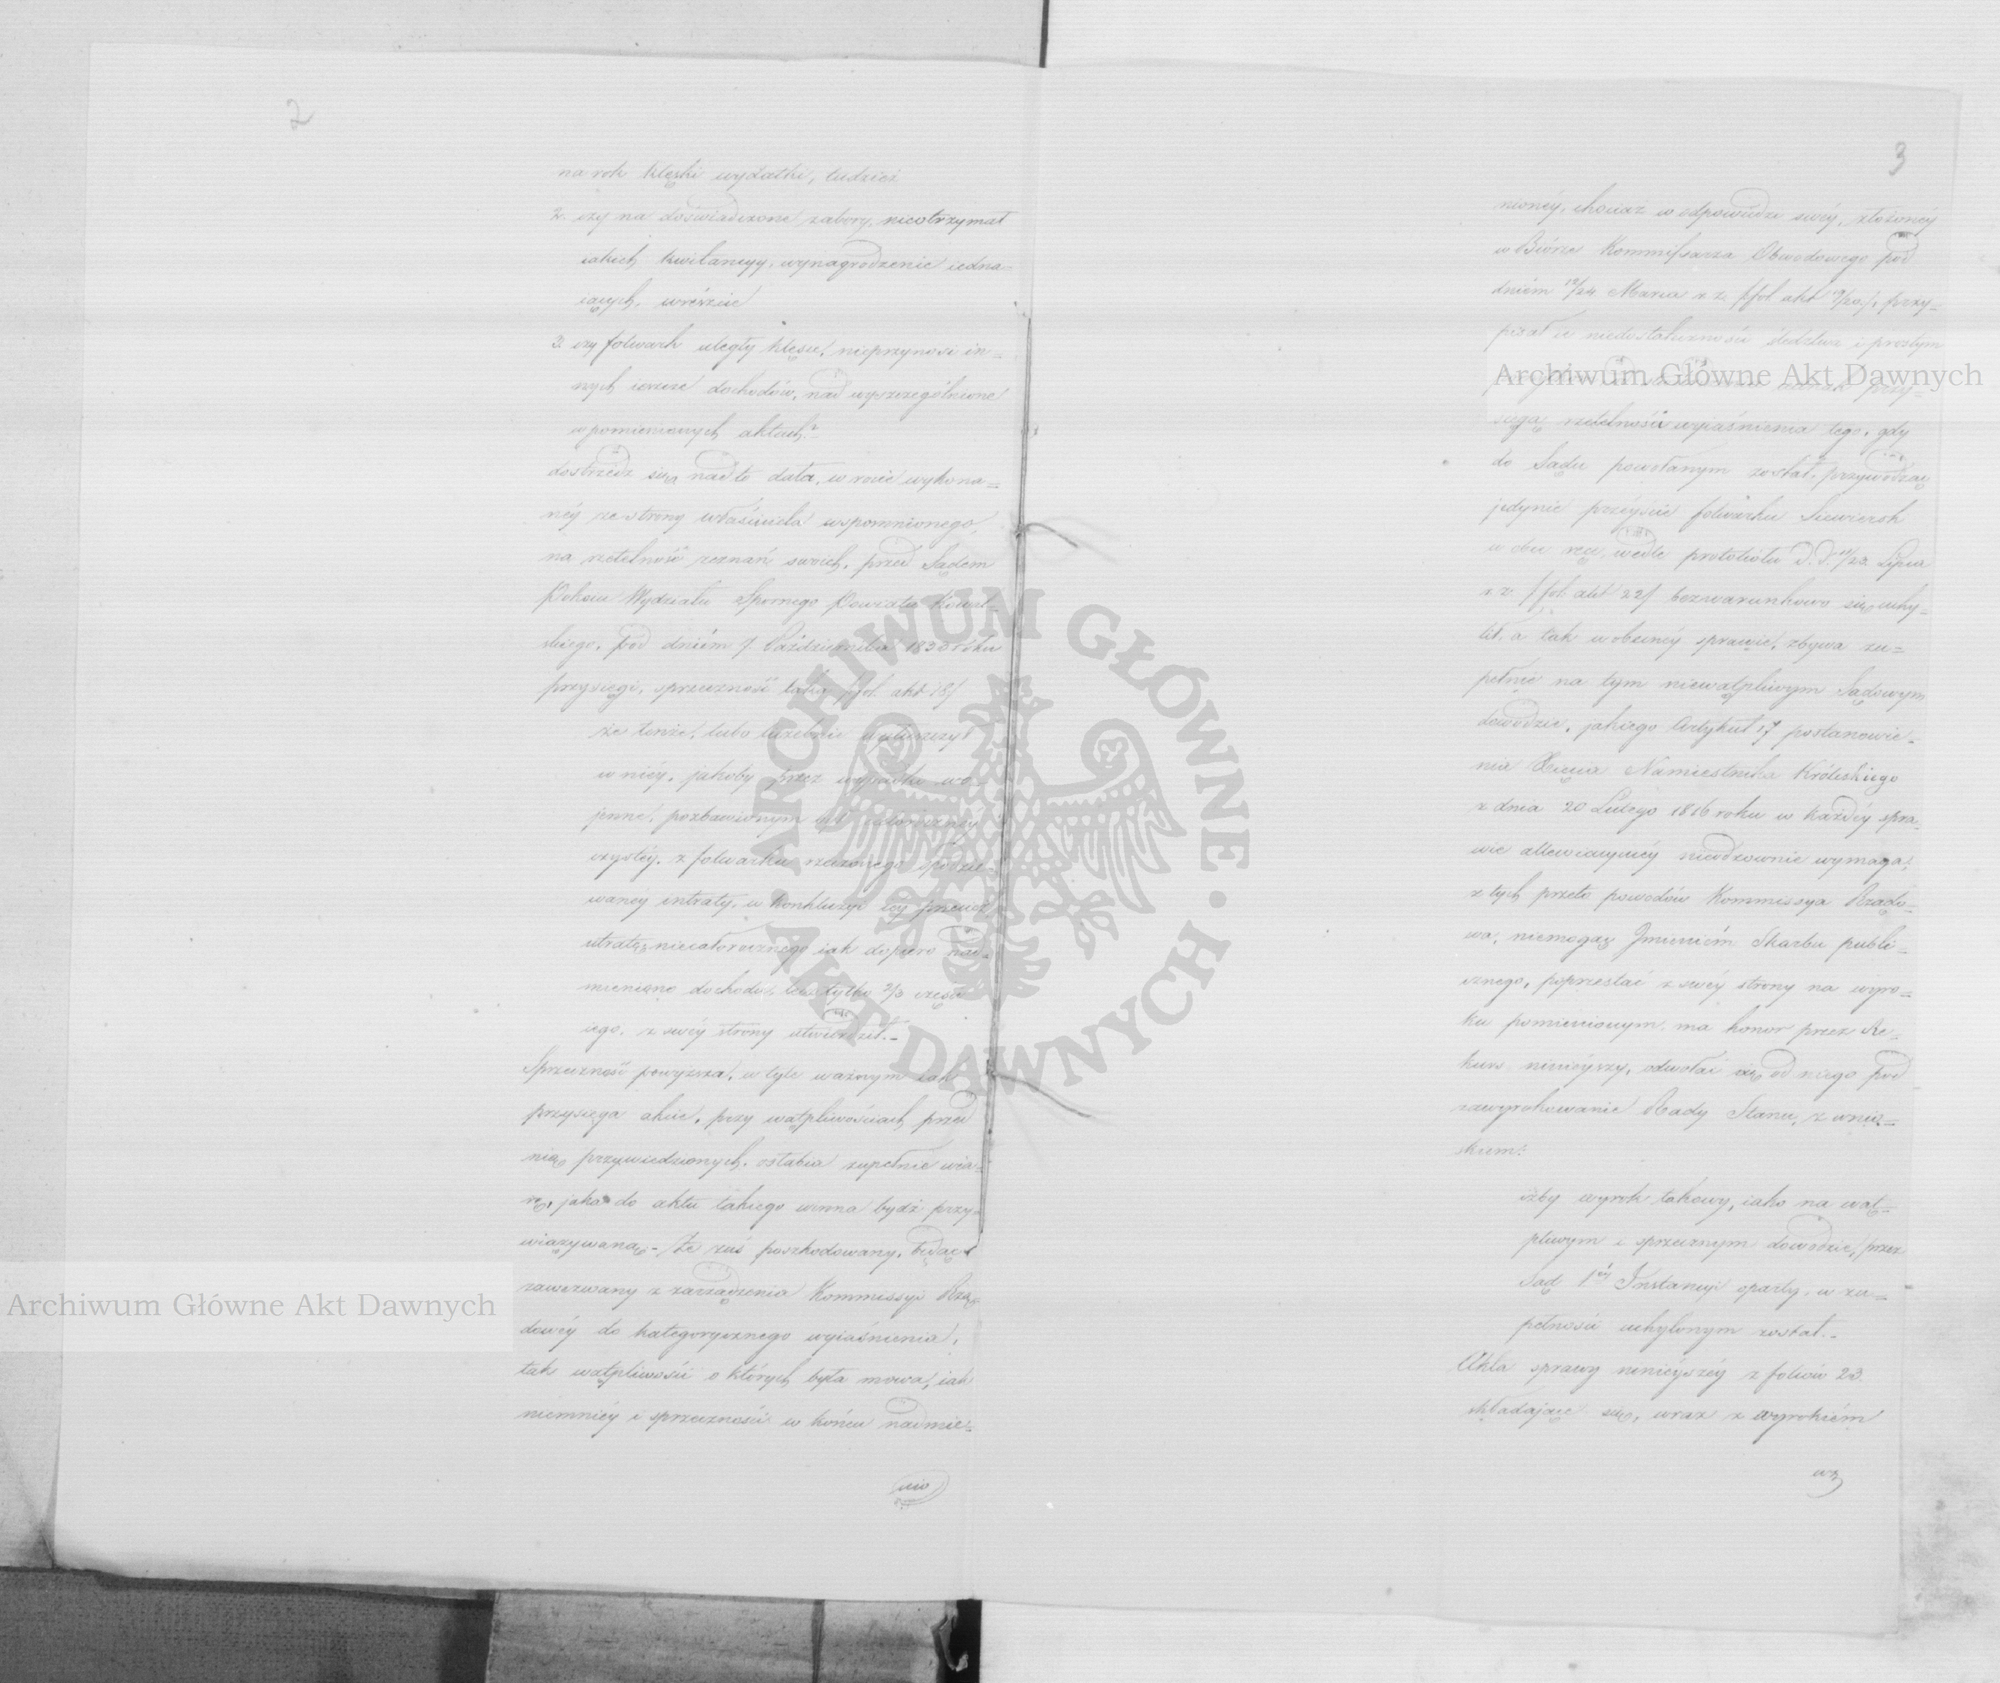 2
na rok klęski wydatki, tudzież
2. czy na doświadczone zabory, nieotrzymał
iakich kwitancyy, wynagrodzenie iedna-
iących, wreszcie
3. czy folwark uległy klęsce, nieprzynosi in=
nych ieszcze dochodów, nad wyszczególnione
w pomienionych aktach?
dostrzedz się nadto dała, w rocie wykona=
néy ze strony właściciela wspomnionego,
na rzetelność zeznań swoich, przed Sądem
Pokoiu Wydziału Spornego Powiatu
skiego, pod dniem 7 Października 183 roku
przysięgi, sprzeczność taka /fol. akt 18/
że tenże, lubo
w niéy, jakoby przez wypadki wo-
jenne, pozbawionym był całoroczney
czystéy, z folwarku rzeczonego spodzie-
wanéy intraty, w konkluzyi iéy
utratę niecałorocznego iak dopiero nad-
mieniono dochodu, lecz tylko 2/3 części
iego, z swéy strony utwierdził.-
Sprzeczność powyższa, w tyle ważnym iak
przysięga akcie, przy wątpliwościach przed
nią przywiedzionych, osłabia zupełnie wia-
rę, jaka do aktu takiego winna bydź przy-
wiązywaną.- Że zaś poszkodowany, będąc
zawezwany z zarządzenia Kommissyi Rzą-
dowéy do kategorycznego wyiaśnienia,
tak wątpliwości o których była mowa, iak
niemniéy i sprzeczności w końcu nadmie-
nio
3
nionéy, chociaż w odpowiedzi swéy, złożonéy
w Biórze Kommissarza Obwodowego pod
dniem 12/24 Marca r. z. /fol akt 19/20/, przy-
pisał ie niedostateczności śledztwa i prostym
Archiwum Główne Akt Dawnych
sięgą rzetelności wyiaśnienia tego, gdy
do Sądu powołanym został, przywodząc
jedynie przeyście folwarku Siewiersk
w obce ręce, wedle protokółu D. D. 11/23 Lipca
r. z. /fol akt 22/ bezwarunkowo się uchy-
lił, a tak w obecnéy sprawie, zbywa zu=
pełnie na tym niewątpliwym Sądowym
dowodzie, jakiego Artykuł 17 postanowie-
nia Xięcia Namiestnika Królewskiego
z dnia 20 Lutego 1816 roku w każdéy spra-
wie allewiacyinéy nieodzownie wymaga;
z tych przeto powodów Kommissya Rządo-
wa, niemogąc Imieniém Skarbu publi-
cznego, poprzestać z swéy strony na wyro-
ku pomienionym, ma honor przez Re-
kurs ninieyszy, odwołać się od niego pod
zawyrokowanie Rady Stanu, z wnio-
skiem:
ażby wyrok takowy, iako na wąt-
pliwym i sprzecznym dowodzie, przez
Sąd 1éy Instancyi oparty, w zu-
pełności uchylonym został.-
Akta sprawy ninieyszéy z foliów 23.
składające się, wraz z wyrokiém
Archiwum Główne Akt Dawnych
ARCHIWUM GŁÓWNE AKT DAWNYCH